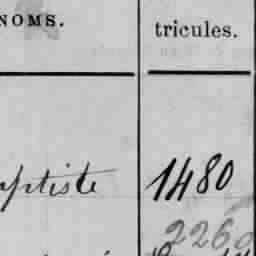 NOMS.
tricules.
aptiste 1480
226